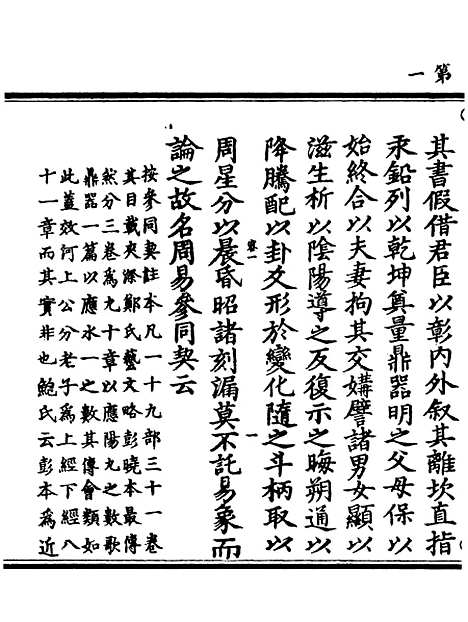 第一
其書假借君臣以彰內外叙其離坎直指
汞鉛列以乾坤奠量鼎器明之父母保以
始終合以夫妻拘其交媾譬諸男女顯以
滋生析以陰陽導之反復示之晦朔通以
降騰配以卦爻形於變化隨之斗柄取以
周星分以晨昏昭諸刻漏莫不託易象而
論之故名周易參同契云
按參同契註本凡一十九部三十一卷
其目載夾漈鄭氏藝文略彭曉本最傳
然分三卷為九十章以應陽九之數歌
鼎器一篇以應水一之數其傅會類如
此蓋效河上公分老子為上經下經八
十一章而其實非也鮑氏云彭本為近
卷一
一